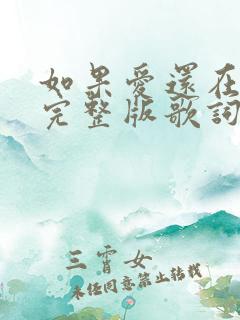 如果愛還在
完整版歌詞
三霄女
未经同意禁止转载